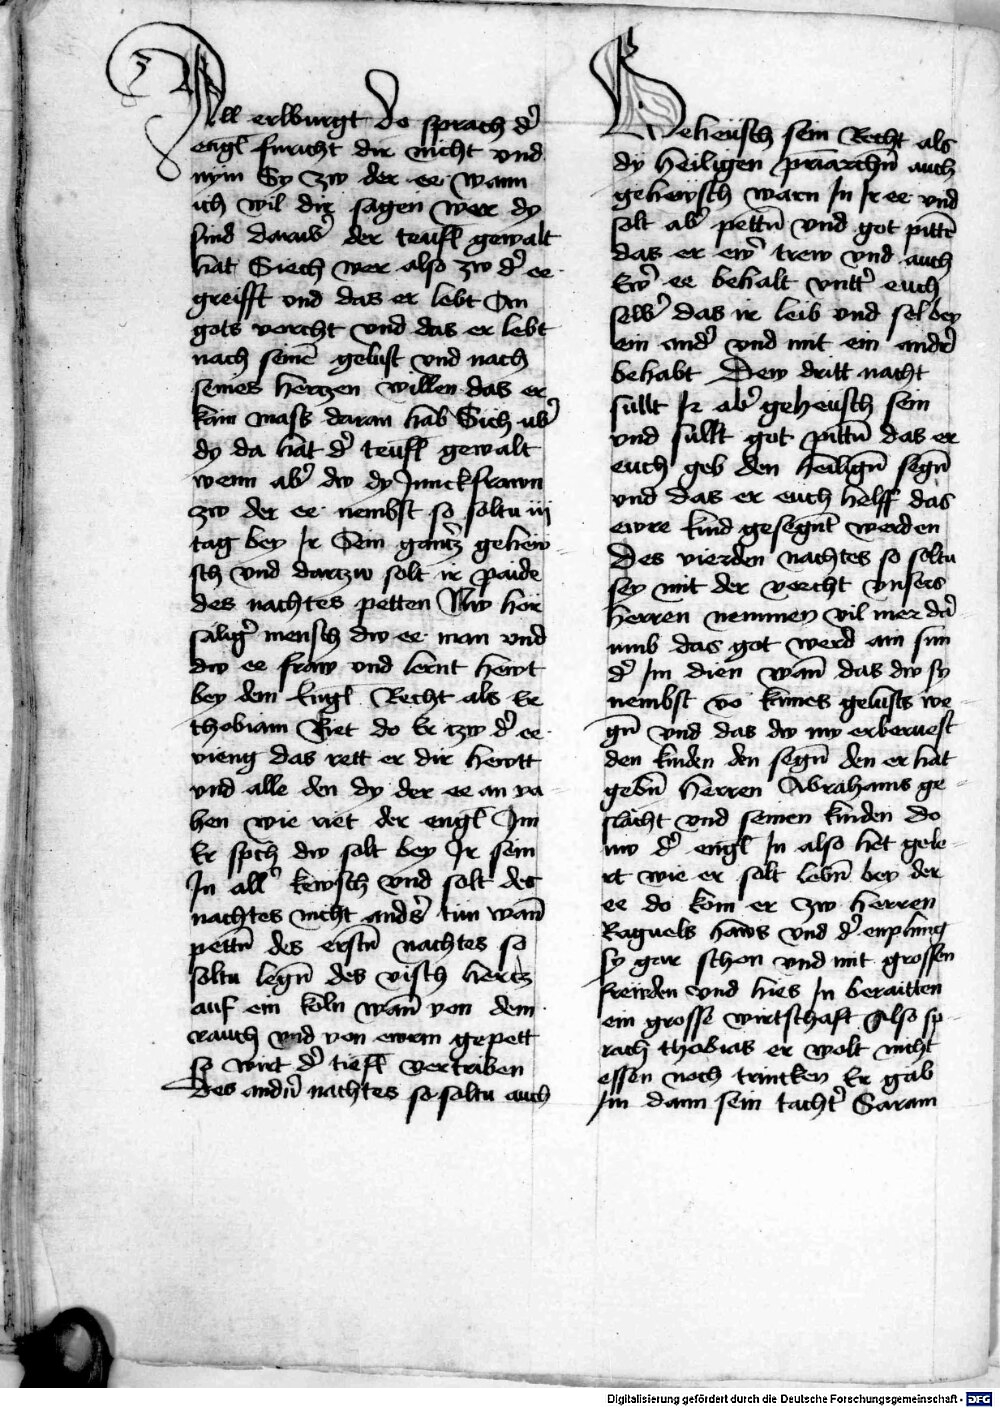 All erwurgt Do sprach d̕
engl̕ furicht dir nicht vnd
nÿm Sy zw der ee wann
ich wil dir sagen wer dy
sind darub̕ der teufl gewalt
hat Siech wer also zw d̕ ee
greifft vnd das er lebt An
gots vorcht vnd das er lebt
nach seinē gelust vnd nach
seines hertzen willen das er
kain mass daran hab Sich ub̕
dy da hat d̕ teufl gewalt
wenn ab̕ dw dy Junckfrawn
zw der ee nembst so soltu iij
tag bey Ir Sein gantz gehew
sch vnd dartzw solt ir paide
des nachtes petten Nw hör
sälig̕ mensch dw ee man vnd
dw ee fraw vnd lernt hewt
bey dem Engl̕ Recht als Er
thobiam Riet do Er tzw d̕ ee
vieng das rett er dir hewtt
vnd alle den dy der ee an va
hen wie riet der engl̕ Im
Er spch dw solt bey Ir sein
In all̕ kewsch vnd solt des
nachtes nicht and̕s tun wan̄
pettn̄ des erstn̄ nachtes so
soltu legn̄ des visch hertz
auf ein koln wan̄ von dem
rauch vnd von ewrm gepett
so wirt d̕ tiefl vertriben
Des andn̄ nachtes so soltu auch
Geheüsch sein Recht als
dÿ heiligen priarchn̄ auch
gehewsch warn In Ir ee vnd
solt ab̕ pettn̄ vnd got pittē
das er ew̕ trew vnd auch
Ew̕ ee behalt vntt̕ euch
selb̕ das ir leib vnd sel bey
ein and̕ vnd mit ein andr̕
behabt Dew dritt nacht
süllt Ir ab̕ geheusch sein
vnd süllt got pittn̄ das er
euch geb den heilign̄ segn̄
vnd das er euch helff das
ewre kind gesegnt werden
Des vierden nachtes so soltu
sey mit der vorcht vnsers
herren nemmen vil mer dar̄
umb das got werd ain sun
d̕ Im dien wan̄ das dw sy
nembst vō kaines gelusts we
gn̄ vnd das dw nw erberuest
den kinden den segn̄ den er hat
gebn̄ herren Abrahams ge
slächt vnd seinen kinden do
nw d̕ engl̕ In also het gele
rt wie er solt lebn̄ bey der
ee do kom er zw herren
Raguels haws vnd d̕ enphieng
sy gar schon vnd mit grossen
frewden vnd hies In beraitten
ein grosse wirtschaft Also sp
rach thobias er wolt nicht
essen noch trincken Er gäb
Im dann sein tacht̕ Saram
Digitalisierung gefördert durch die Deutsche Forschungsgemeinschaft - DFG